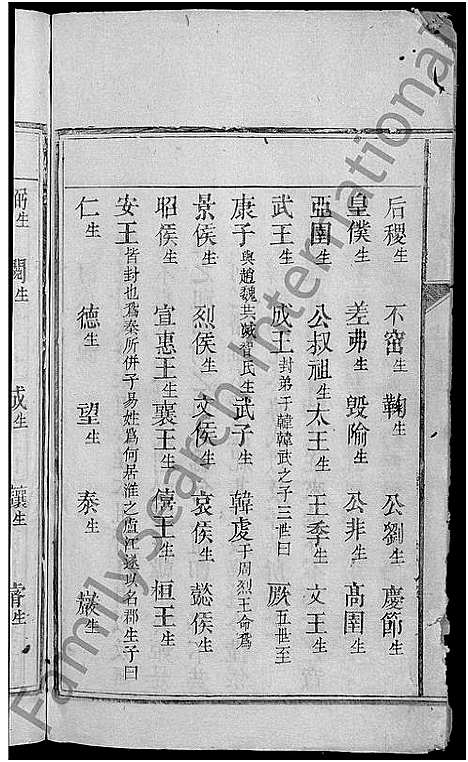 后稷生 不窋生 鞠生 公劉生 慶節生
皇僕生 差弗生 毀隃生 公非生 高圉生
亞圉生 公叔祖生 太王生 王季生 文王生
武王生 成王封弟于韓韓武之子三世曰 厥五世至
康子與趙魏共滅智氏生 武子生 韓虔于周烈王命爲
景侯生 烈侯生 文侯生 哀侯生 懿侯生
昭侯生 宣惠王生 襄王生 僖王生 桓王生
安王皆封也爲秦所併子易姓爲何居淮之廬江遂以名郡生子曰
仁生 德生 望生 泰生 巌生
成生 讓生
FamilySearch International